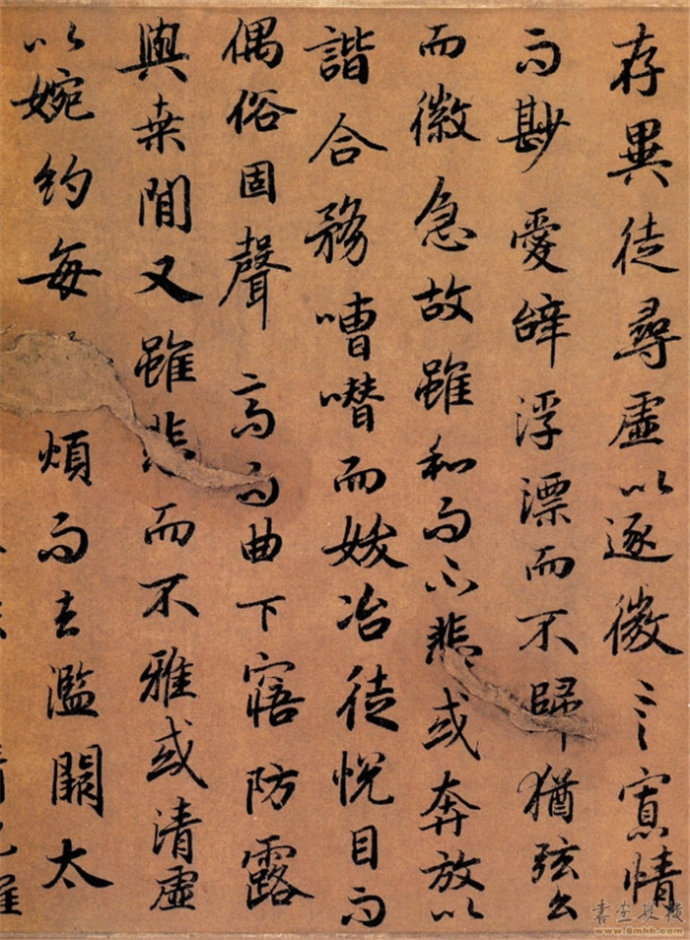 存異徒尋虛以逐微言寡情
而尠愛辝浮漂而不歸猶弦么
而徽急故雖和而不悲或奔放以
諧合務嘈噆而妖冶徒悅目而
偶俗固聲高而曲下寤防露
與桒間又雖悲而不雅或清虛
以婉約每煩而去濫闕太
www.8mhh.com